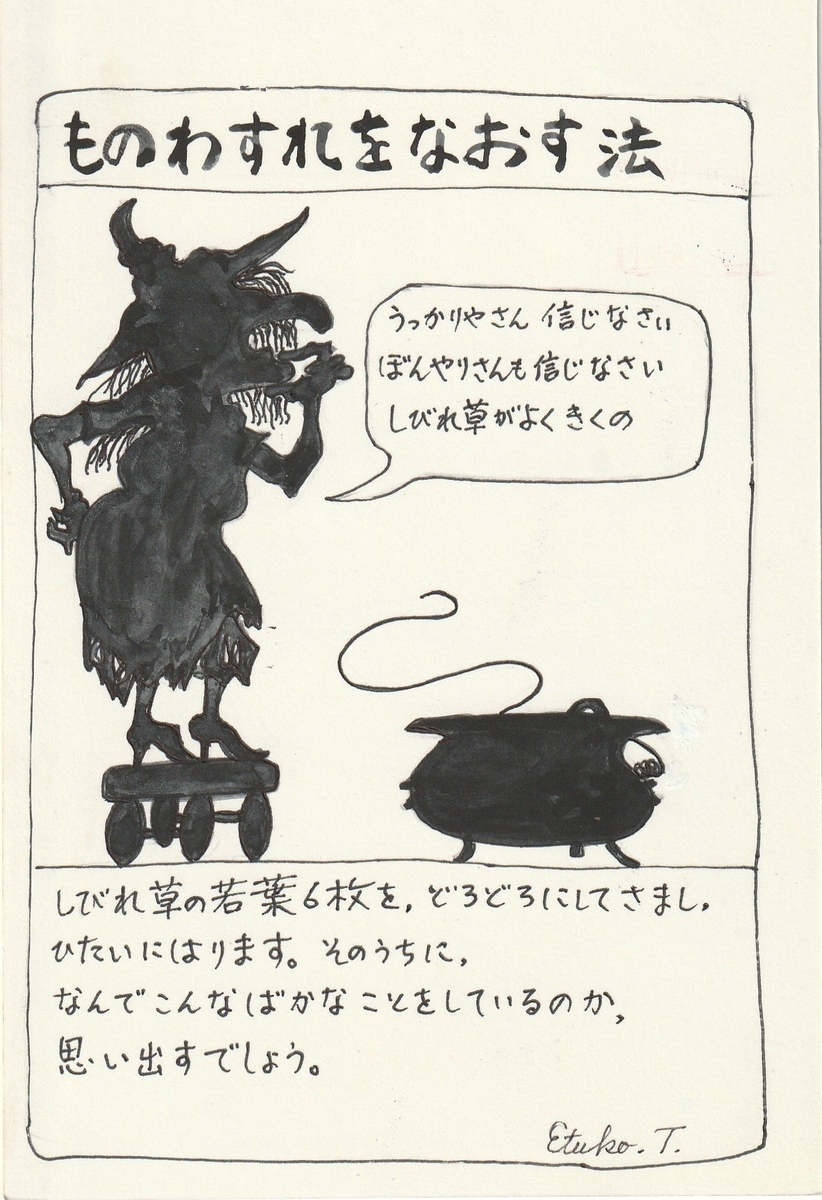 ものわすれをなおす法
うっかりやさん 信じなさい
ぼんやりさんも信じなさい
しびれ草がよくきくの
しびれ草の若葉6枚を，どろどろにしてさまし，
ひたいにはります。そのうちに，
なんでこんなばかなことをしているのか，
思い出すでしょう。
Etuko. T.